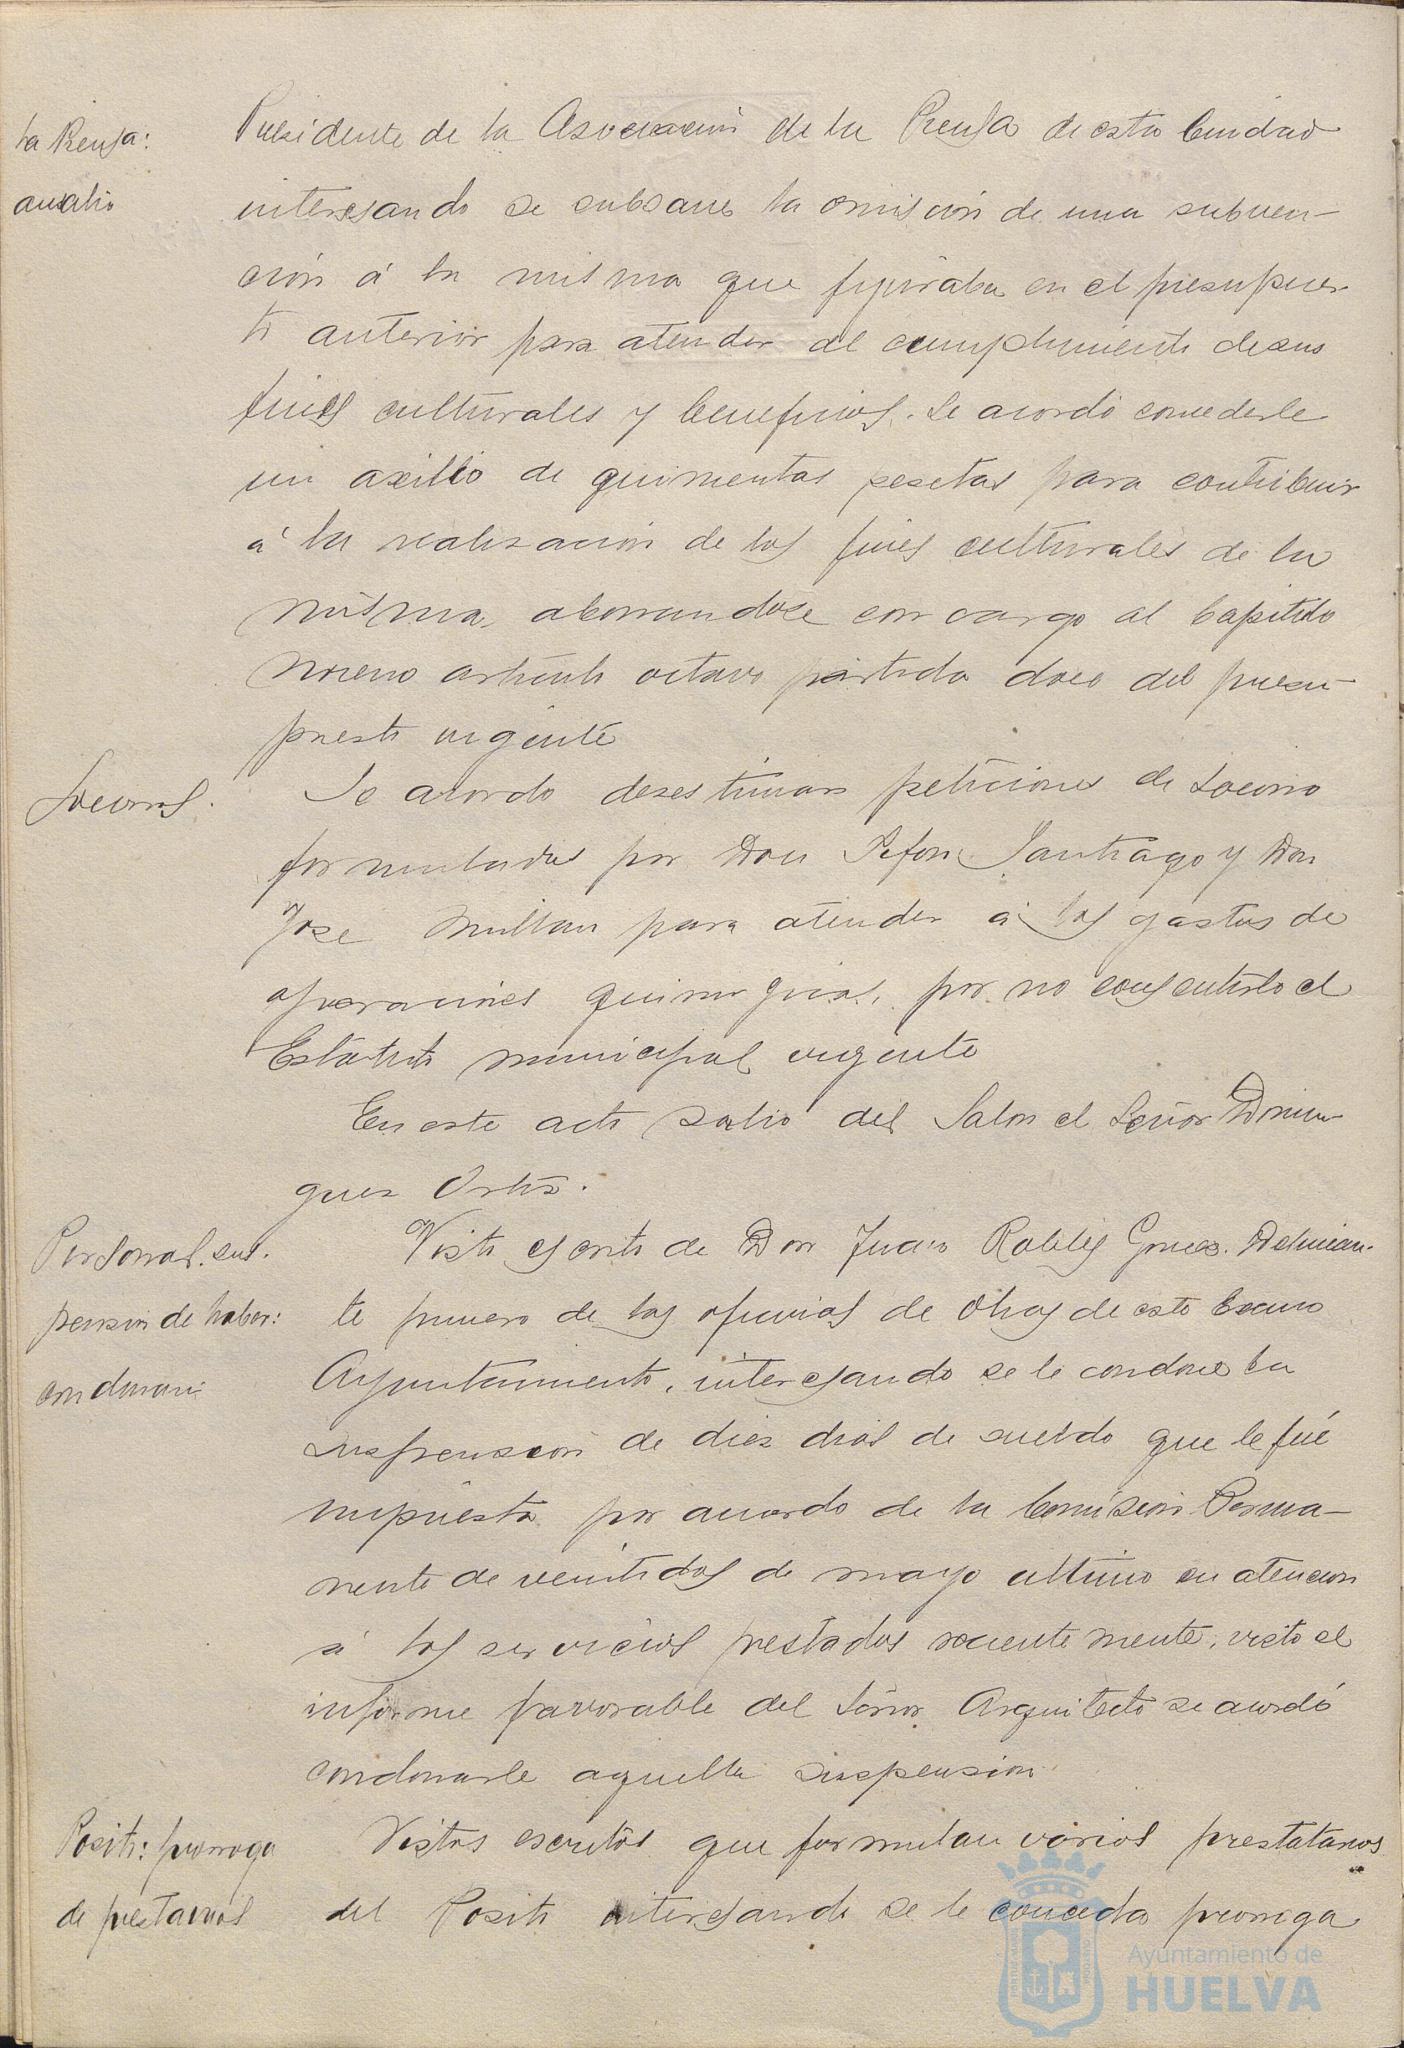 la Prensa:
auxilio
Presidente de la Asociación de la Prensa de esta Ciudad
interesando se subsane la omisión de una subven-
ción á la misma que figuraba en el presupues-
to anterior para atender al cumplimiento de sus
fines culturales y beneficios. Se acordó concederle
un axilio de quinientas pesetas para contribuir
á la realización de los fines culturales de la
misma, abonandose con cargo al Capitulo
noveno articulo octavo partida doce del presu-
puesto vigente
Socorros.
Se acordo desestimar peticiones de socorro
formuladas por Don Santiago y Don
Jose Millan para atender á los gastos de
operaciones quirurgicas, por no consentirlo el
Estatuto municipal vigente
En este acto salio del Salon el Señor Domin-
guez Ortiz.
Personal. sus-
pension de haber:
condonacion
Visto escrito de Don Juan Robles Delinean-
te primero de las oficinas de Obras de este Excmo
Ayuntamiento, interesando se le condone la
suspension de diez dias de sueldo que le fué
impuesta por acuerdo de la Comisión Perma-
nente de veintidos de mayo ultimo en atencion
á los servicios prestados recientemente, visto el
informe favorable del Señor Arquitecto se acordó
condonarle aquella suspension.
Posito: prorroga
de prestamos
Vistos escritos que formulan varios prestatarios
del Posito interesando se le conceda prorroga
Ayuntamiento de
HUELVA